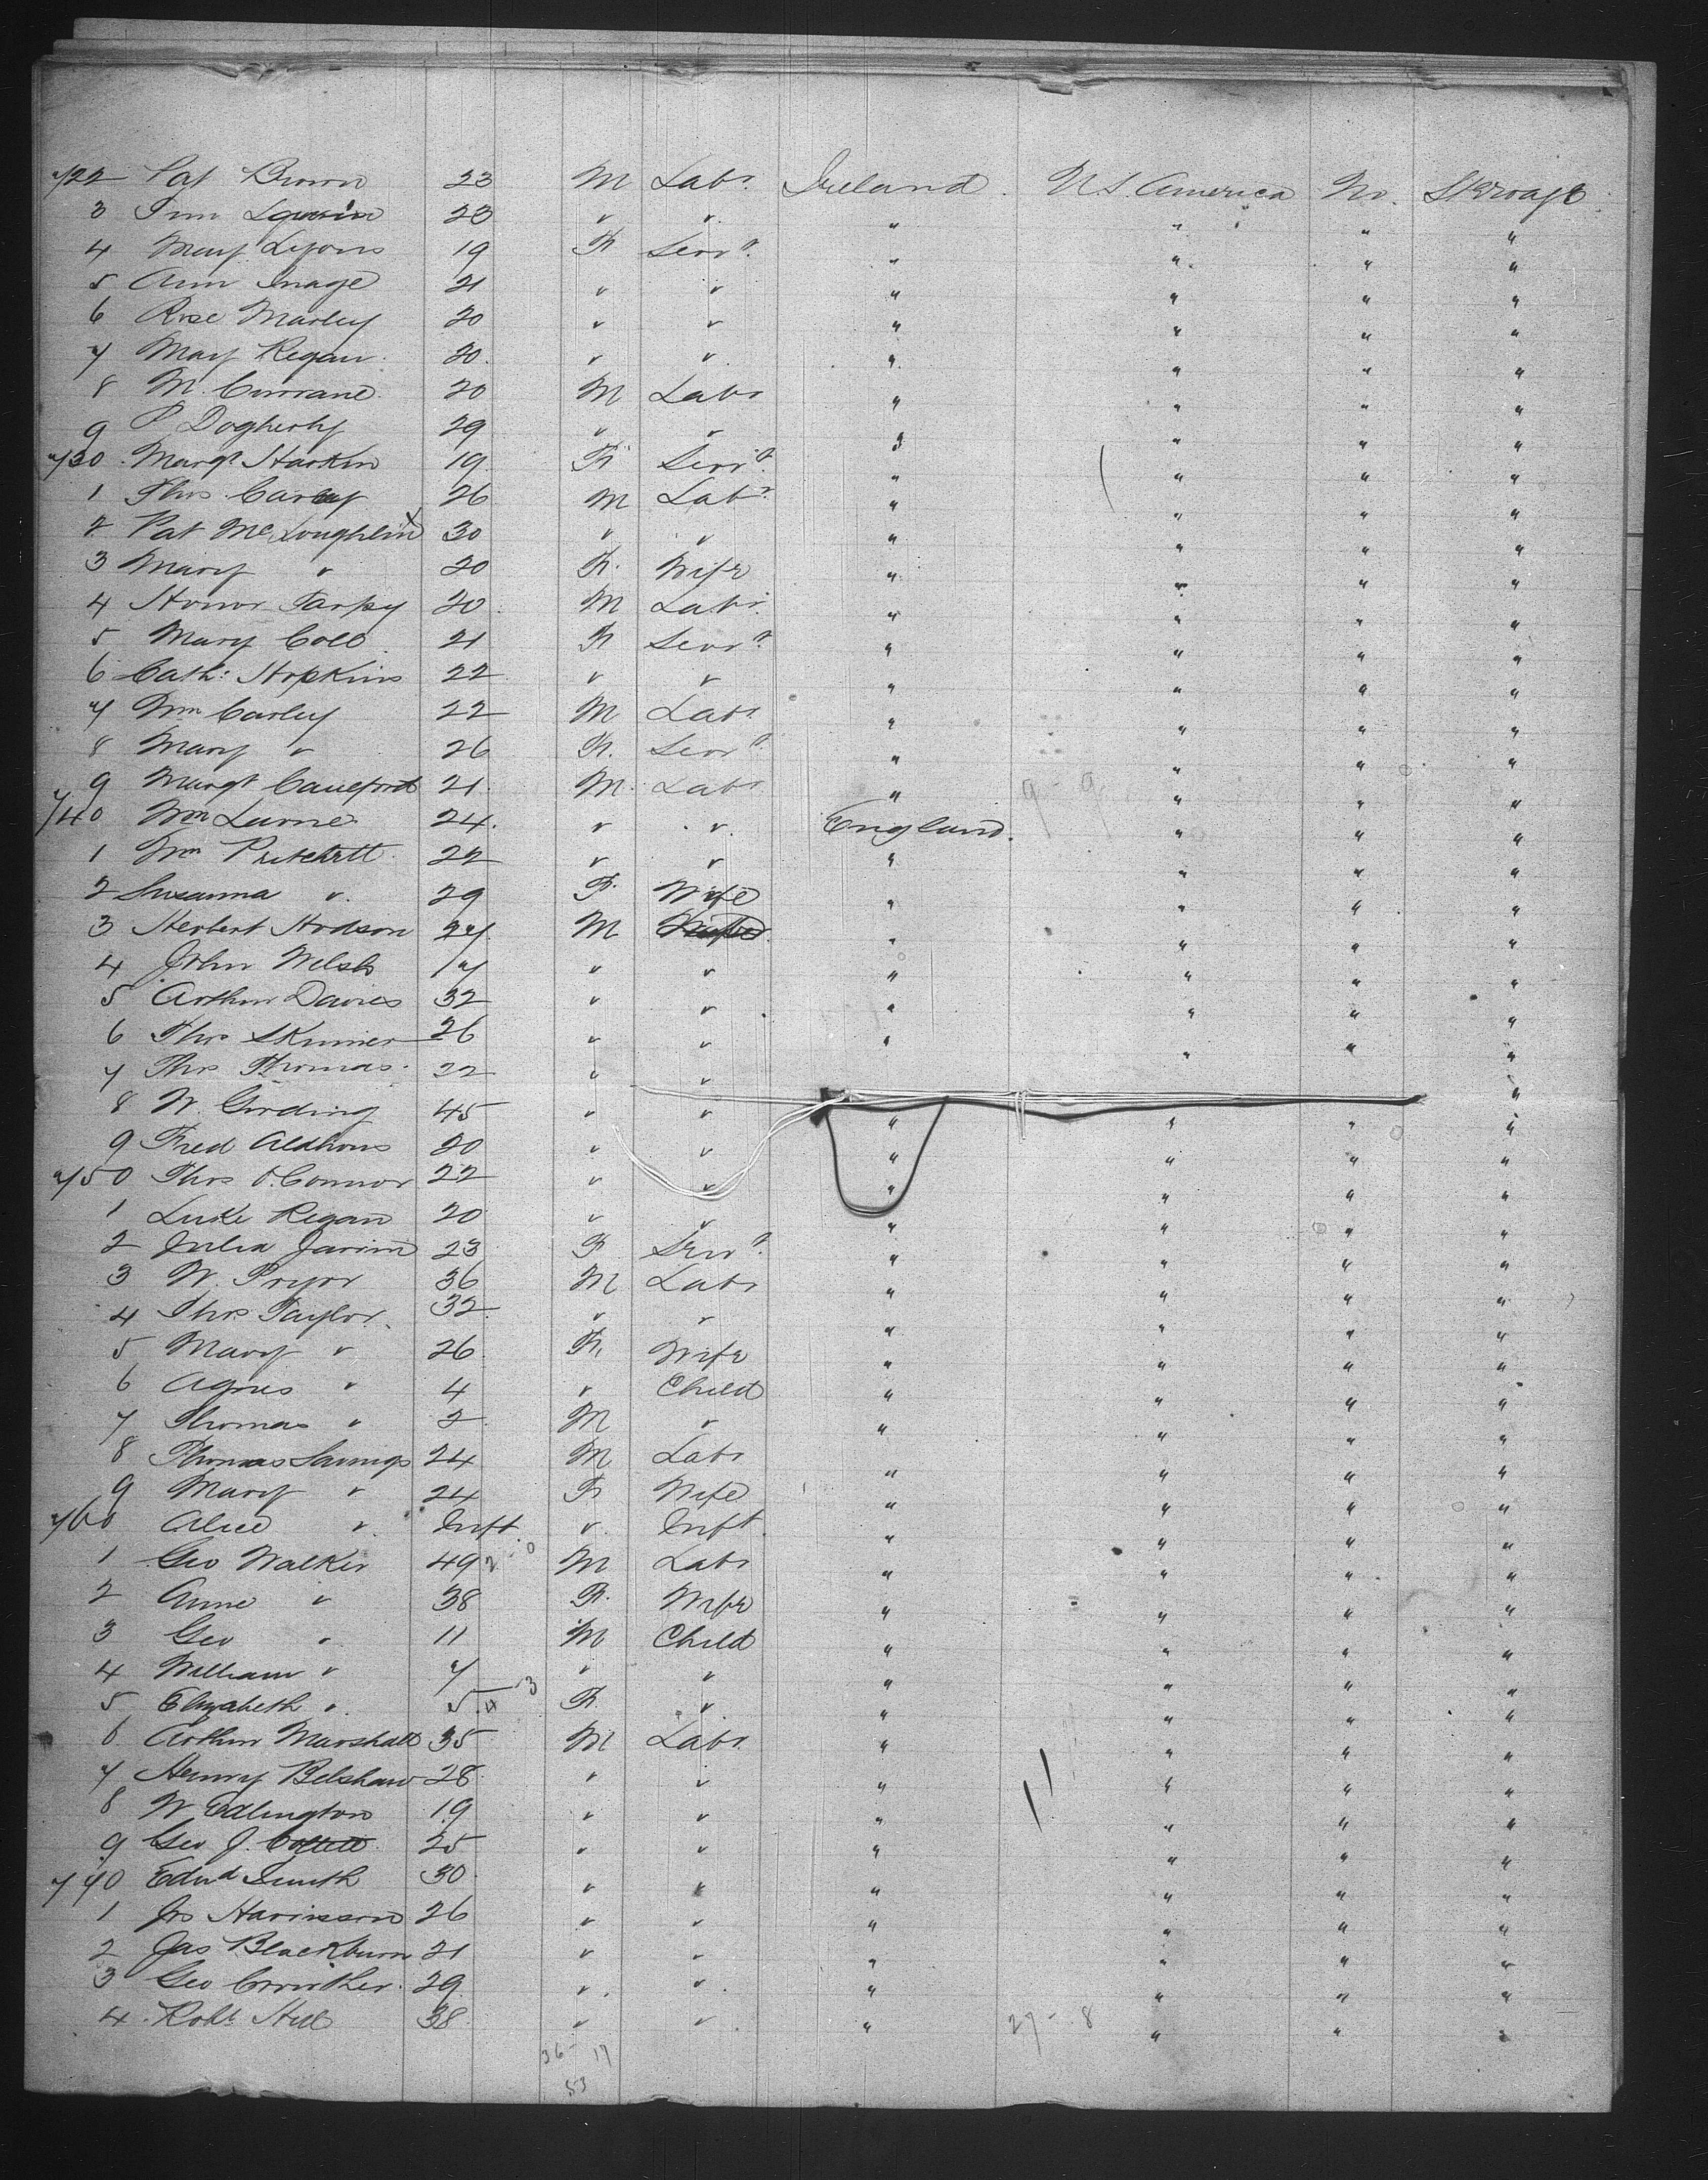 722 Pat Brown 23 M Labr Ireland U.S. America No. Steerage
3 23 " " " " " "
4 Mary Lyons 19 F Servt " " " "
5 Ann 21 " " " " " "
6 Rose Marley 20 " " " " " "
7 Mary Regan 20 " " " " " "
8 M. Currane 20 M Labr " " " "
9 P Dogherty 29 " " " " " "
730 Margt Harkin 19 F Servt " " " "
1 Thos Carey 26 M Labr " " " "
2 Pat McLoughlin X 30 " " " " " "
3 Mary " 20 F Wife " " " "
4 Honor Tarpy 20 M Labr " " " "
5 Mary Coll 21 F Servt " " " "
6 Cath: Hopkins 22 " " " " " "
7 Wm Carley 22 M Labr " " " "
8 Mary " 26 F Servt " " " "
9 Margt 21 M Labr " 9 - 9 " " "
740 Wm 24 " " England " " "
1 Wm Pritchett 22 " " " " " "
2 Susanna " 29 F Wife " " " "
3 Herbert Hodson 27 M " " " "
4 John Welsh 17 " " " " " "
5 Arthur Davies 32 " " " " " "
6 Thos Skinner 26 " " " " " "
7 Thos Thomas 22 " " "
8 W. Gooding 45 " " " " " "
9 Fred Aldhous 20 " " " " " "
750 Thos O'Connor 22 " " " " " "
1 Luke Regan 20 " " " " " "
2 Julia 23 F Servt " " " "
3 W. Pryor 36 M Labr " " " "
4 Thos Taylor 32 " " " " " "
5 Mary " 26 F Wife " " " "
6 Agnes " 4 " Child " " " "
7 Thomas " 2 M " " " " "
8 Thomas 24 M Labr " " " "
9 Mary " 24 F Wife " " " "
760 Alice " Inft " Inft " " " "
1 Geo Walker 49 2 - 0 M Labr " " " "
2 Anne " 38 F Wife " " " "
3 Geo " 11 M Child " " " "
4 William " 7 " " " " " "
5 Elizabeth " 5 4 - 3 F " " " " "
6 Arthur Marshall 35 M Labr " " " "
7 Henry Belshaw 28 " " " " " "
8 W Edlington 19 " " " " " "
9 Geo J. 25 " " " " " "
770 Edwd Smith 30 " " " " " "
1 Jos Harrisson 26 " " " " " "
2 Jas Blackburn 21 " " " " " "
3 Geo Crowther 29 " " " " " "
4 Robt Hill 38 " " " 27 - 8 " " "
36 - 17
53